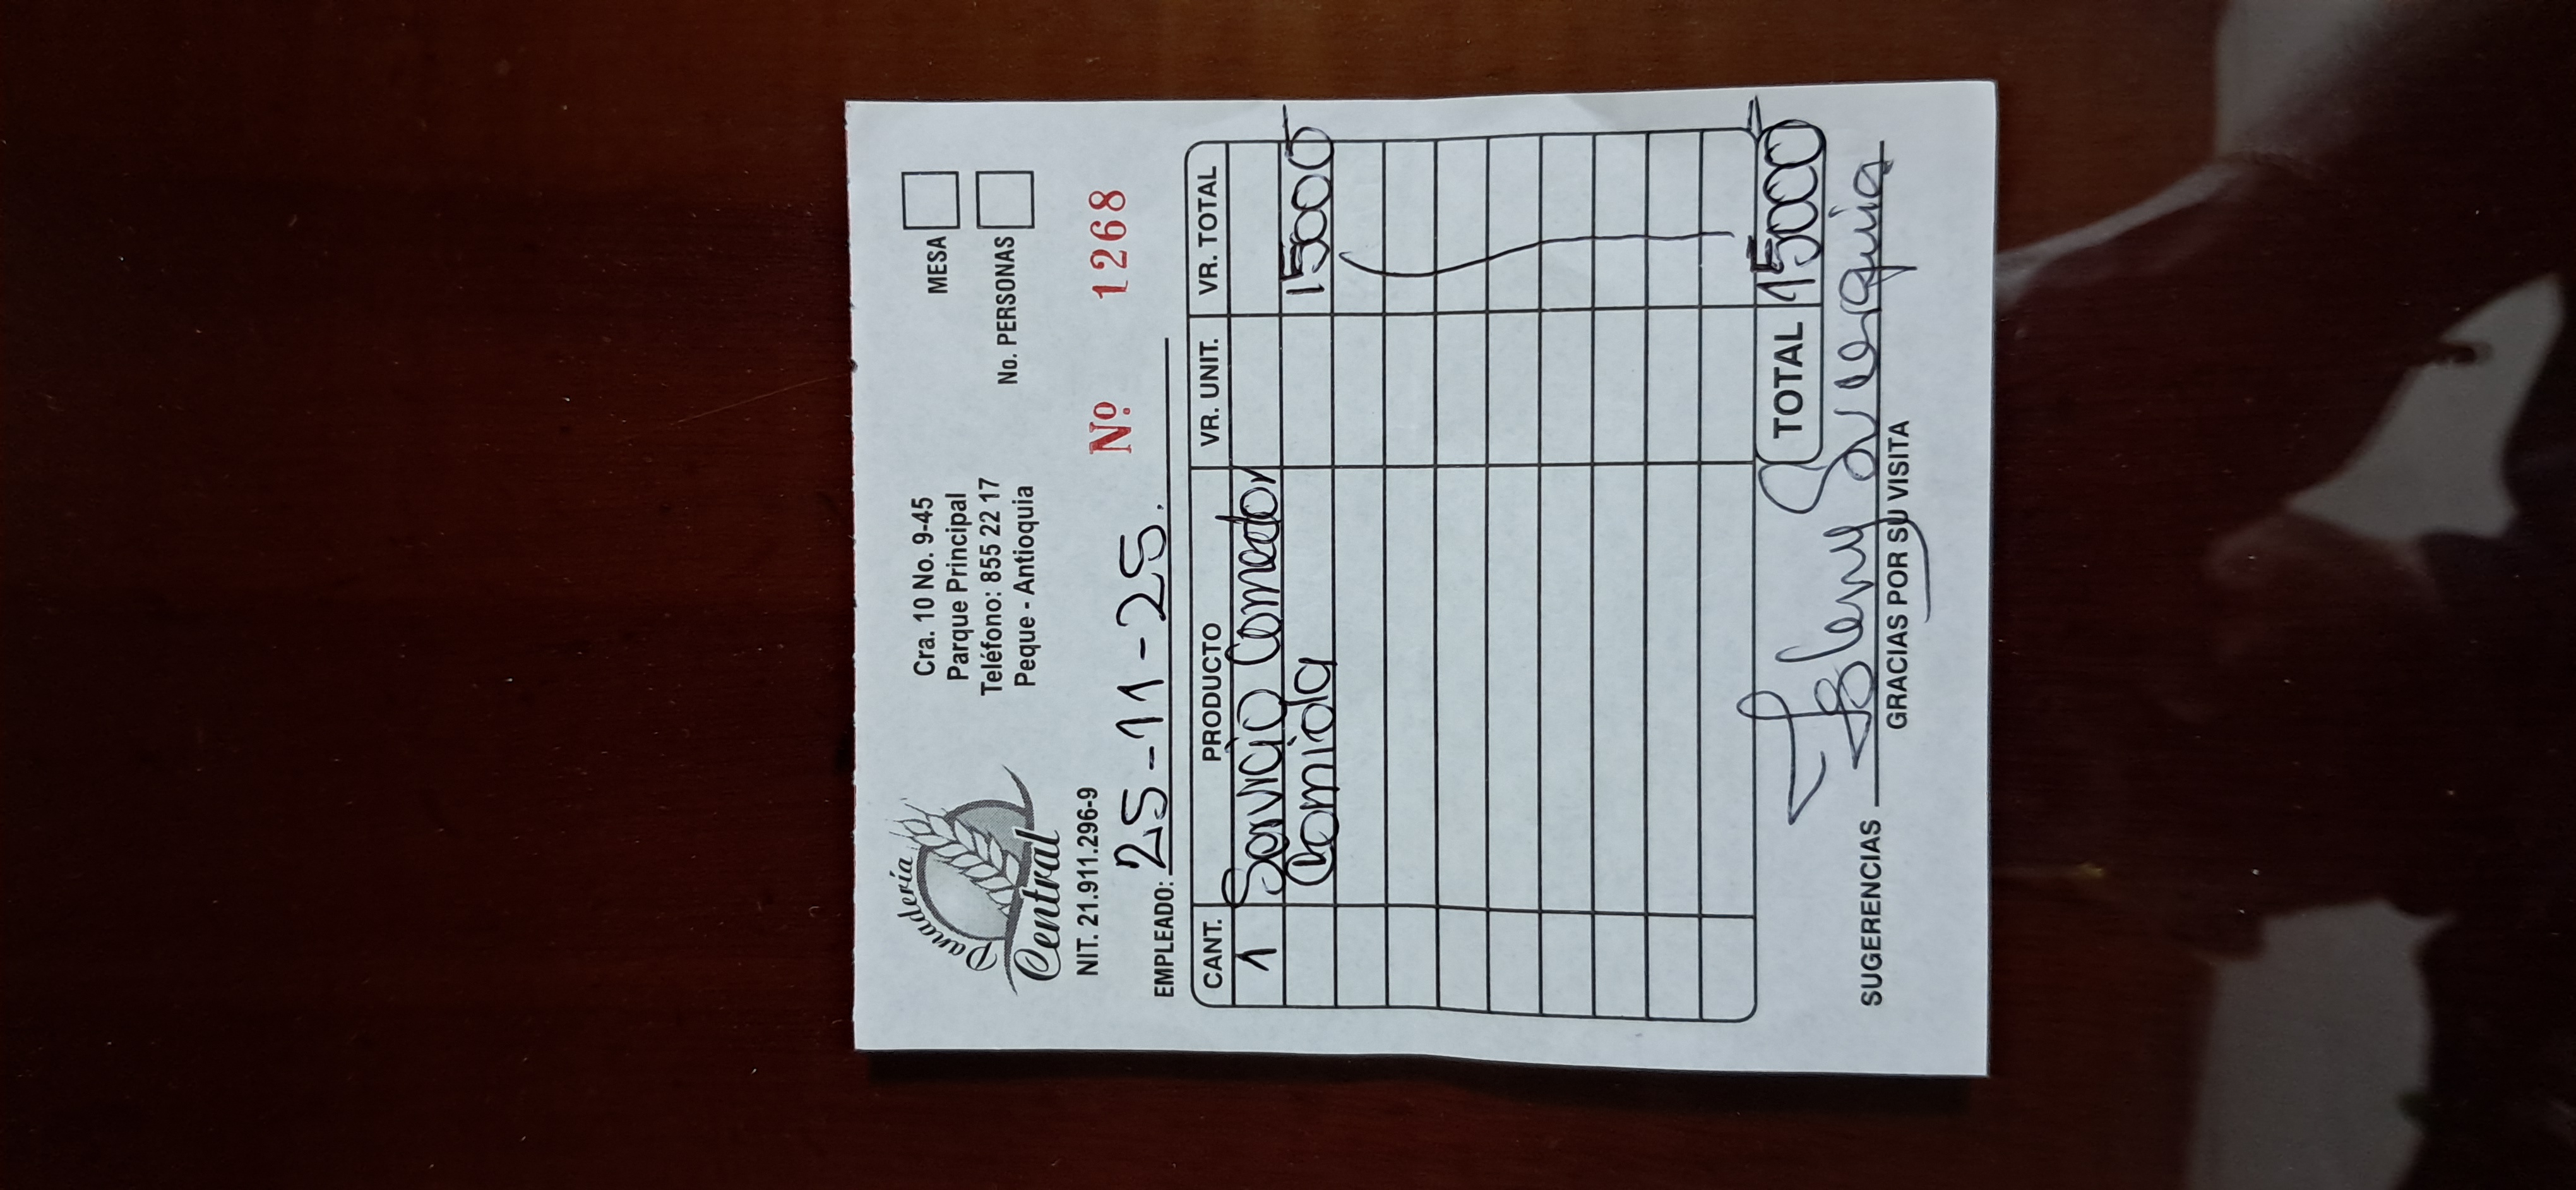 Panadería
Central
Cra. 10 No. 9-45
Parque Principal
Teléfono: 855 22 17
Peque - Antioquia
MESA
No. PERSONAS
NIT. 21.911.296-9
Nº 1268
EMPLEADO: 25-11-25.
CANT. PRODUCTO VR. UNIT. VR. TOTAL
1 Servicio Comedor
Comida 15000
TOTAL 15000
SUGERENCIAS
GRACIAS POR SU VISITA